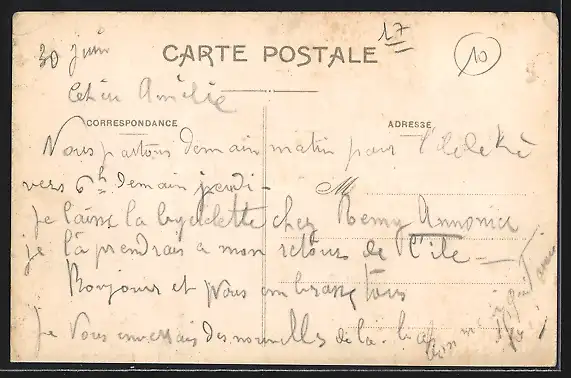 30 juin
17
10
CARTE POSTALE
Amélie
CORRESPONDANCE
ADRESSE
Nous partons demain matin pour l'île de
vers 6h demain jeudi -
M
Je laisse la bycidette chez Remy
je la prendrais a mon retour de l'île -
Bonjour et Nous embrasse tous
Je Vous enverrais des nouvelles de la